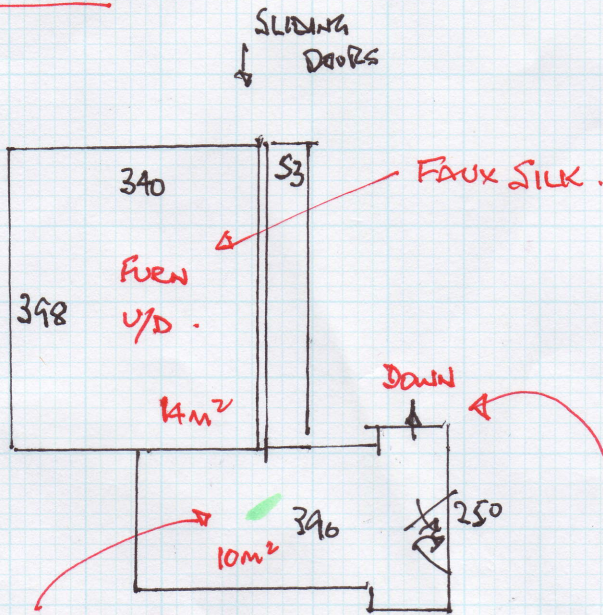 SLIDING
DOORS
340
53
FAUX SILK.
FURN
U/D.
398
14M²
DOWN
396
250
10M²